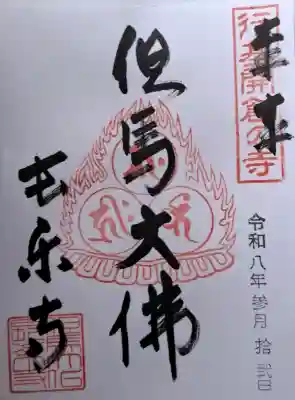 奉来
行基開創の寺
令和八年参月拾弐日
但馬大佛
長楽寺